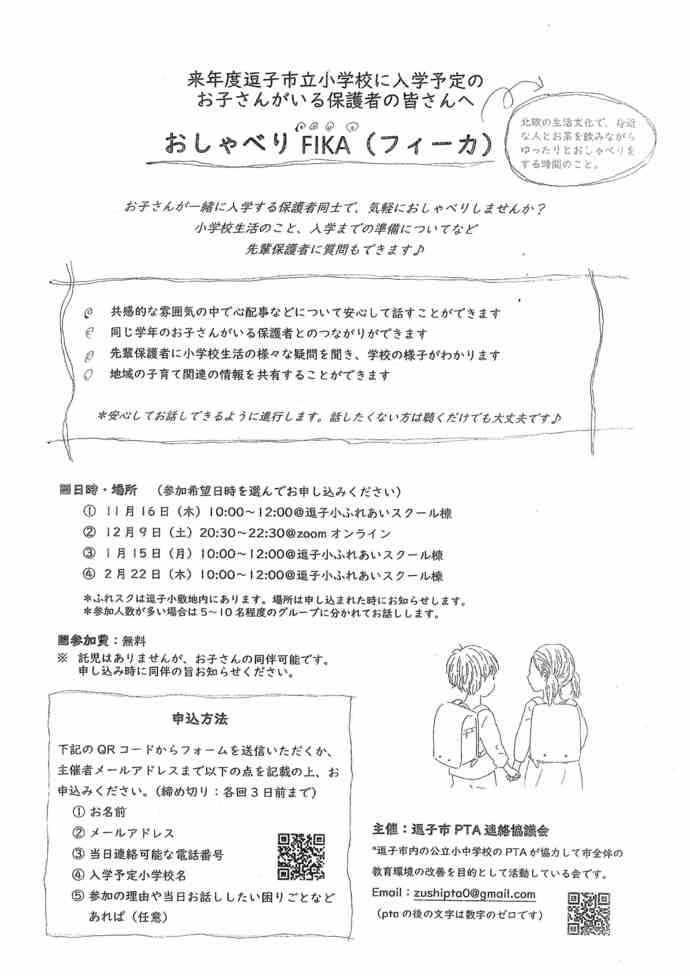 来年度逗子市立小学校に入学予定の
お子さんがいる保護者の皆さんへ
おしゃべり FIKA（フィーカ）
北欧の生活文化で、身近
な人とお茶を飲みながら
ゆったりとおしゃべりを
する時間のこと。
お子さんが一緒に入学する保護者同士で、気軽におしゃべりしませんか？
小学校生活のこと、入学までの準備についてなど
先輩保護者に質問もできます♪
共感的な雰囲気の中で心配事などについて安心して話すことができます
同じ学年のお子さんがいる保護者とのつながりができます
先輩保護者に小学校生活の様々な疑問を聞き、学校の様子がわかります
地域の子育て関連の情報を共有することができます
＊安心してお話しできるように進行します。話したくない方は聴くだけでも大丈夫です♪
■日時・場所　（参加希望日時を選んでお申し込みください）
① 11月16日（木）10:00～12:00＠逗子小ふれあいスクール棟
② 12月9日（土）20:30～22:30＠zoomオンライン
③ 1月15日（月）10:00～12:00＠逗子小ふれあいスクール棟
④ 2月22日（木）10:00～12:00＠逗子小ふれあいスクール棟
＊ふれスクは逗子小敷地内にあります。場所は申し込まれた時にお知らせします。
＊参加人数が多い場合は5～10名程度のグループに分かれてお話しします。
■参加費：無料
※　託児はありませんが、お子さんの同伴可能です。
申し込み時に同伴の旨お知らせください。
申込方法
下記のQRコードからフォームを送信いただくか、
主催者メールアドレスまで以下の点を記載の上、お
申込みください。（締め切り：各回3日前まで）
① お名前
② メールアドレス
③ 当日連絡可能な電話番号
④ 入学予定小学校名
⑤ 参加の理由や当日お話ししたい困りごとなど
あれば（任意）
主催：逗子市PTA連絡協議会
*逗子市内の公立小中学校のPTAが協力して市全体の
教育環境の改善を目的として活動している会です。
Email：zushipta0@gmail.com
（ptaの後の文字は数字のゼロです）